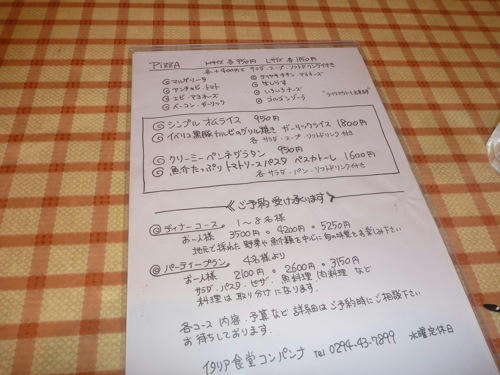 PIZZA Mサイズ 各 950円 Lサイズ 各 1850円
各 +400円で サラダ・スープ・ソフトドリンク付き
マルゲリータ
アンチョビ・トマト
エビ・マヨネーズ
ベーコン・ガーリック
テリヤキチキン・マヨネーズ
生しらす
いろいろチーズ
ゴルゴンゾーラ
シンプル オムライス 950円
イベリコ黒豚カルビのグリル焼き ガーリックライス 1800円
各 サラダ・スープ・ソフトドリンク付き
クリーミー ペンネグラタン 950円
魚介たっぷり トマトソースパスタ ペスカトーレ 1600円
各 サラダ・パン・ソフトドリンク付き
ご予約 受け承ります
ディナーコース 1〜8名様
お一人様 3500円 。 4200円 。 5250円
地元で採れた 野菜や魚介類を中心に旬の味覚をお楽しみ下さい
パーティープラン 4名様より
お一人様 2100円 。 2600円 。 3150円
サラダ・パスタ・ピザ・魚料理・肉料理 など
料理は 取り分けになります。
各コース 内容・予算など 詳細は ご予約時にご相談下さい
お待ちしております。
イタリア食堂 コンパンナ Tel 0294-43-7899 水曜定休日